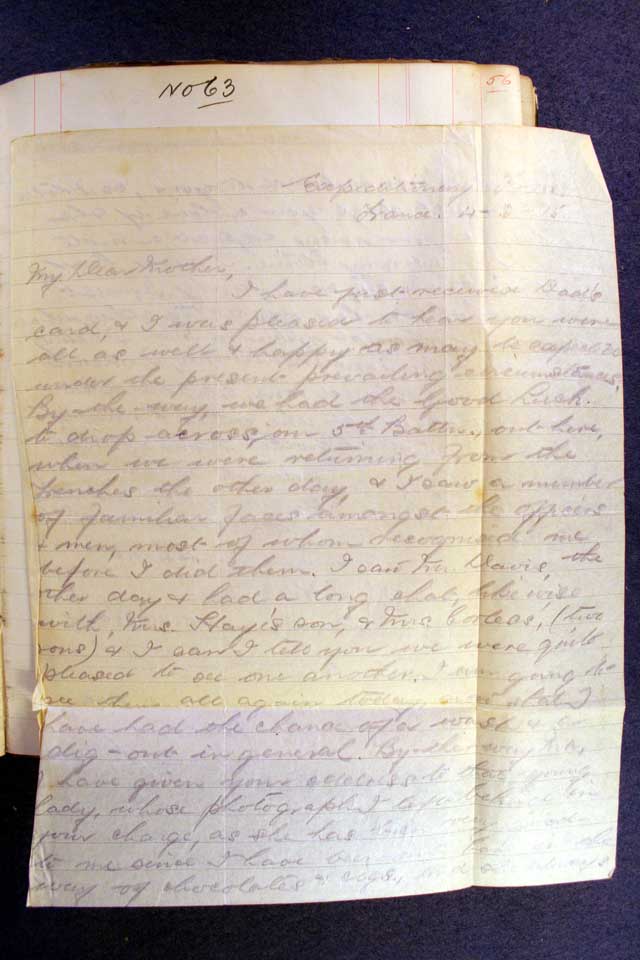 No 63
56
Expeditionary
France. 4-3-15
My Dear Mother,
I have just received Dad's
card, & I was pleased to hear you were
all as well & happy as may be expected
under the present prevailing circumstances,
By-the-way, we had the Good Luck
to drop across our 5th Battn., out here,
when we were returning from the
trenches the other day, & I saw a number
of familiar faces amongst the officers
& men, most of whom recognised me
before I did them. I saw Mr. Davis, the
other day & had a long chat, likewise
with, Mrs. Hayes son, & Mrs (two
sons) & I can I tell you we were quite
pleased to see one another. I am going to
see them all again today, I
have had the chance of a wash & a
dig-out in general. By-the-way
I have given your address to that young
lady, whose photograph I left behind in
your charge, as she has been very
to me since I have been in the
way of chocolates & cigs.,